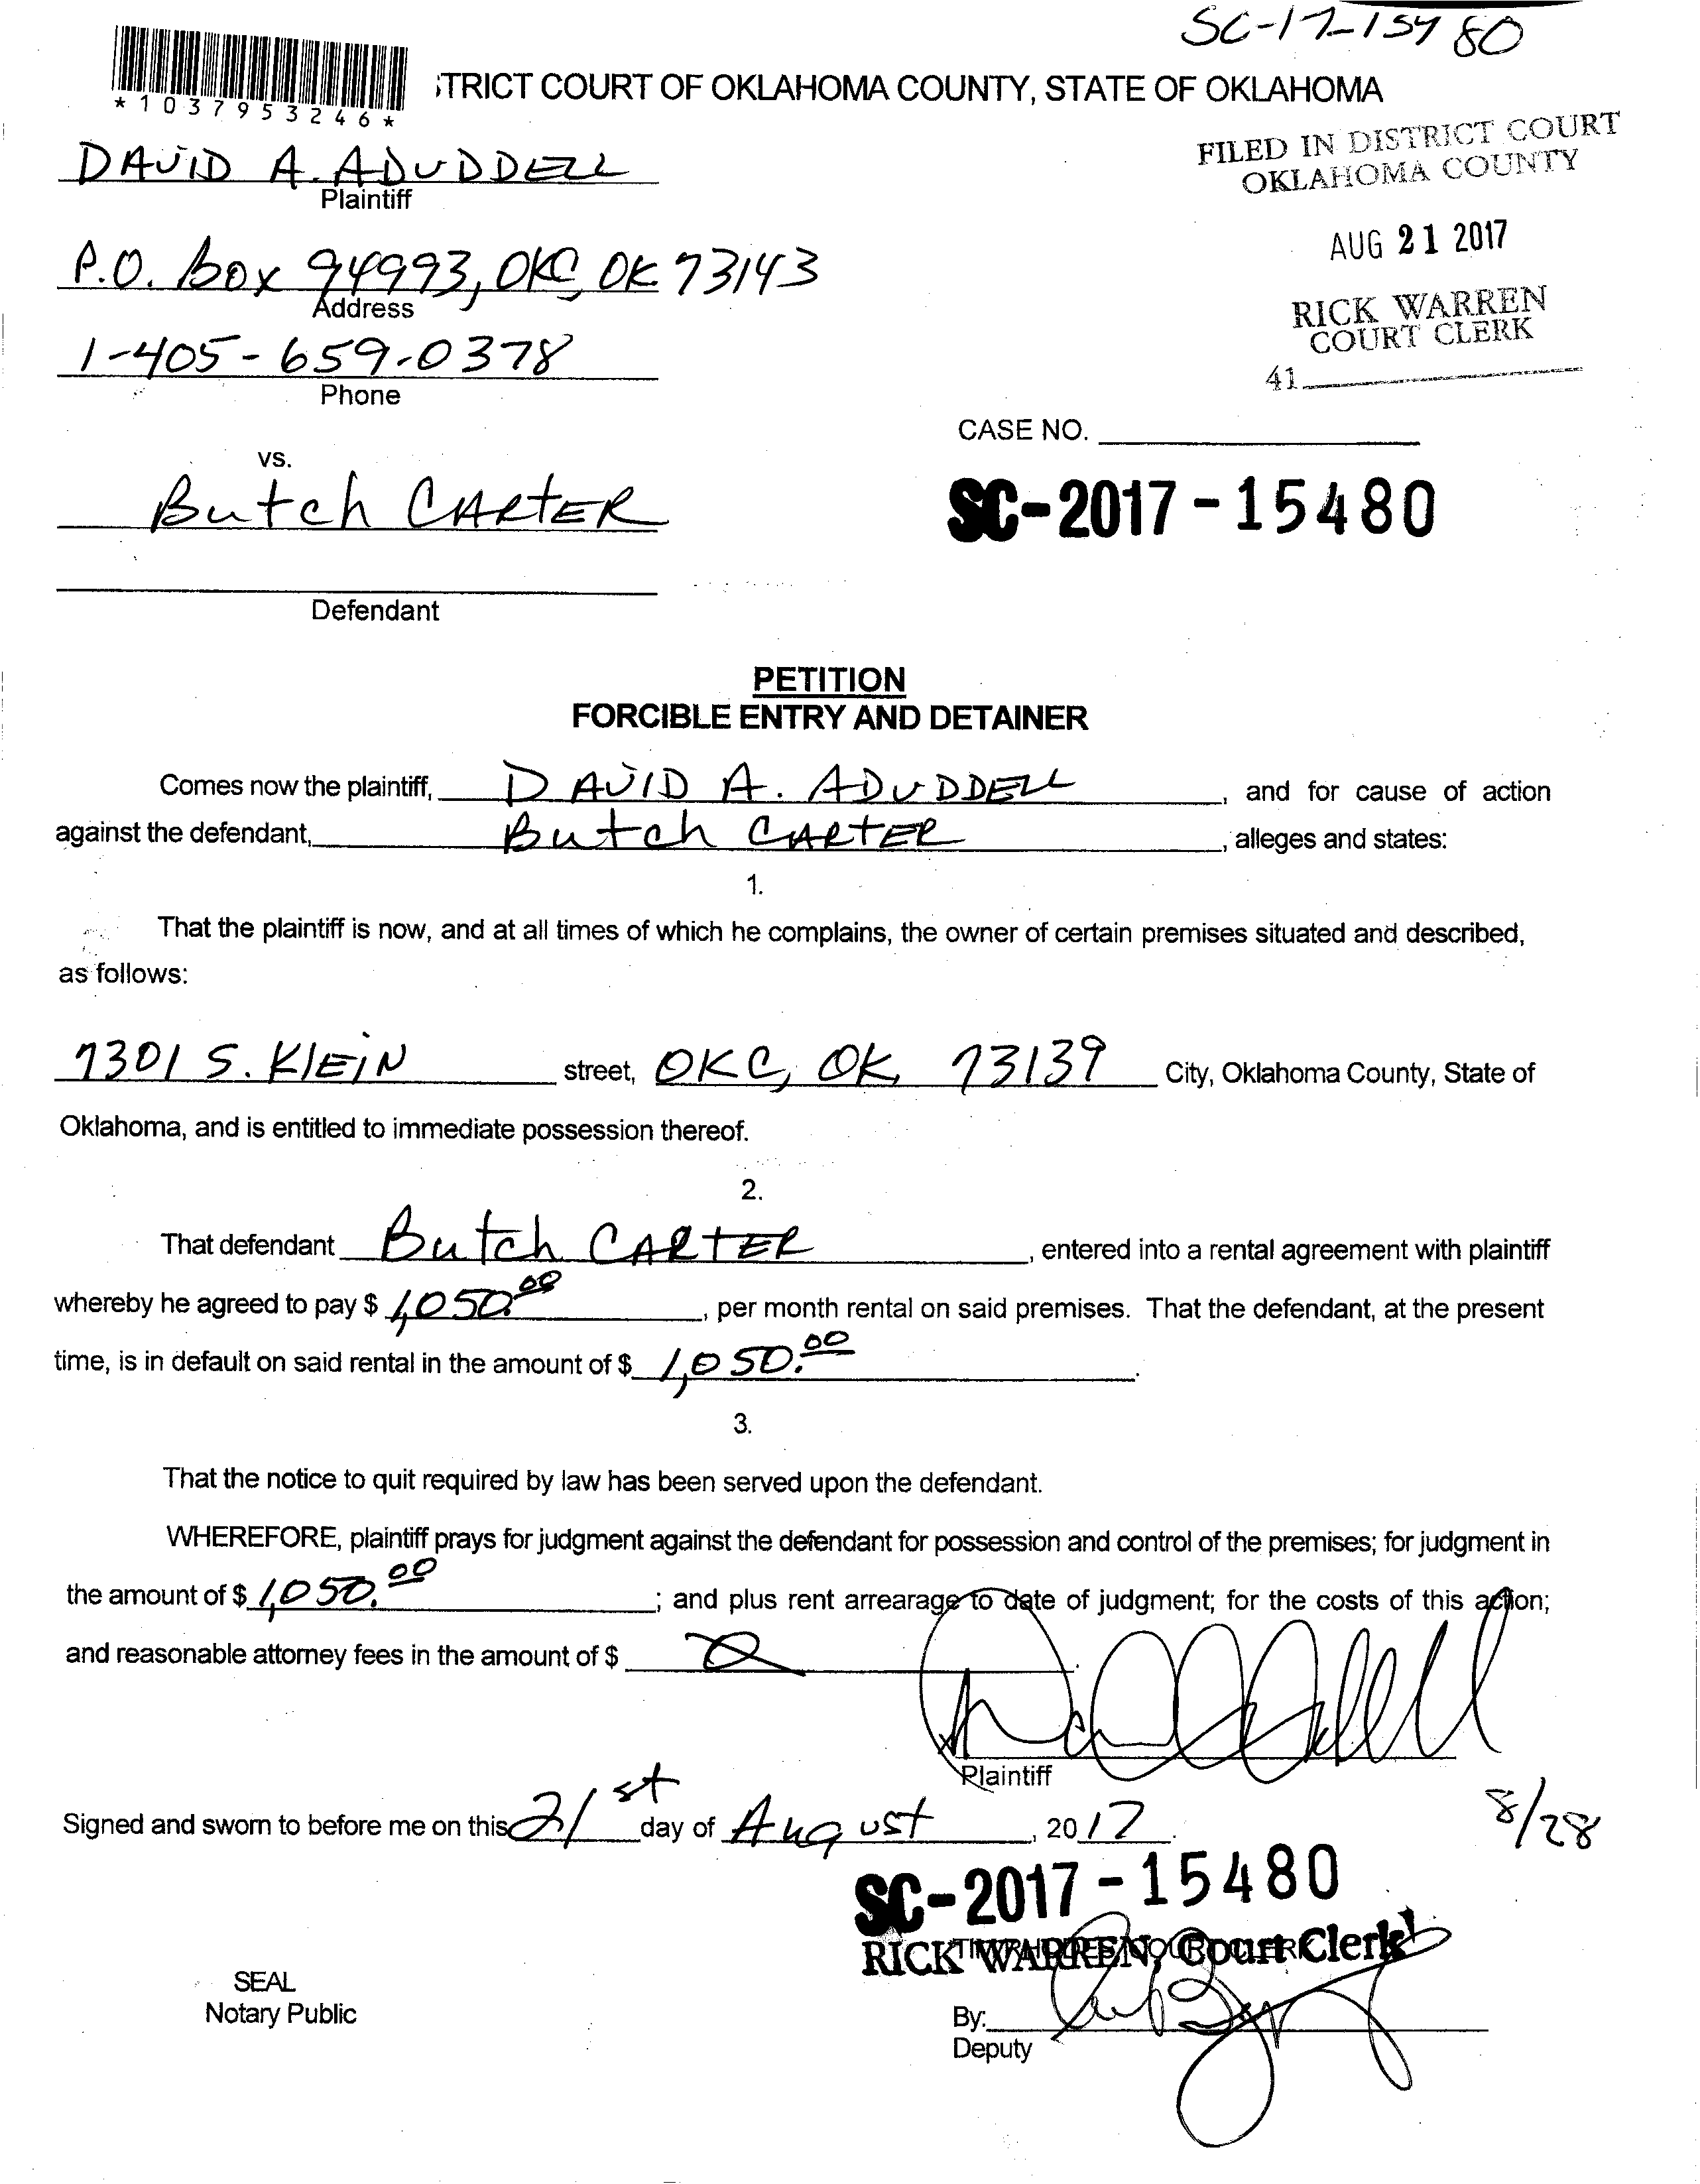 SC-17-15480
*1037953246*
TRICT COURT OF OKLAHOMA COUNTY, STATE OF OKLAHOMA
FILED IN DISTRICT COURT
OKLAHOMA COUNTY
DAVID A. ADUDDELL
Plaintiff
AUG 21 2017
P.O. Box 94993, OKC, OK 73143
Address
RICK WARREN
COURT CLERK
1-405-659-0378
Phone
41
CASE NO.
vs.
Butch CARTER
SC-2017-15480
Defendant
PETITION
FORCIBLE ENTRY AND DETAINER
Comes now the plaintiff, DAVID A. ADUDDELL, and for cause of action
against the defendant, Butch CARTER, alleges and states:
1.
That the plaintiff is now, and at all times of which he complains, the owner of certain premises situated and described,
as follows:
7301 S. KlEiN street, OKC, OK, 73139 City, Oklahoma County, State of
Oklahoma, and is entitled to immediate possession thereof.
2.
That defendant Butch CARTER, entered into a rental agreement with plaintiff
whereby he agreed to pay $ 1,050.00, per month rental on said premises. That the defendant, at the present
time, is in default on said rental in the amount of $ 1,050.00.
3.
That the notice to quit required by law has been served upon the defendant.
WHEREFORE, plaintiff prays for judgment against the defendant for possession and control of the premises; for judgment in
the amount of $ 1,050.00; and plus rent arrearage to date of judgment; for the costs of this action;
and reasonable attorney fees in the amount of $
Plaintiff
Signed and sworn to before me on this 21st day of August, 2017.
8/28
SC-2017-15480
RICK WARREN, Court Clerk
SEAL
Notary Public
By:
Deputy